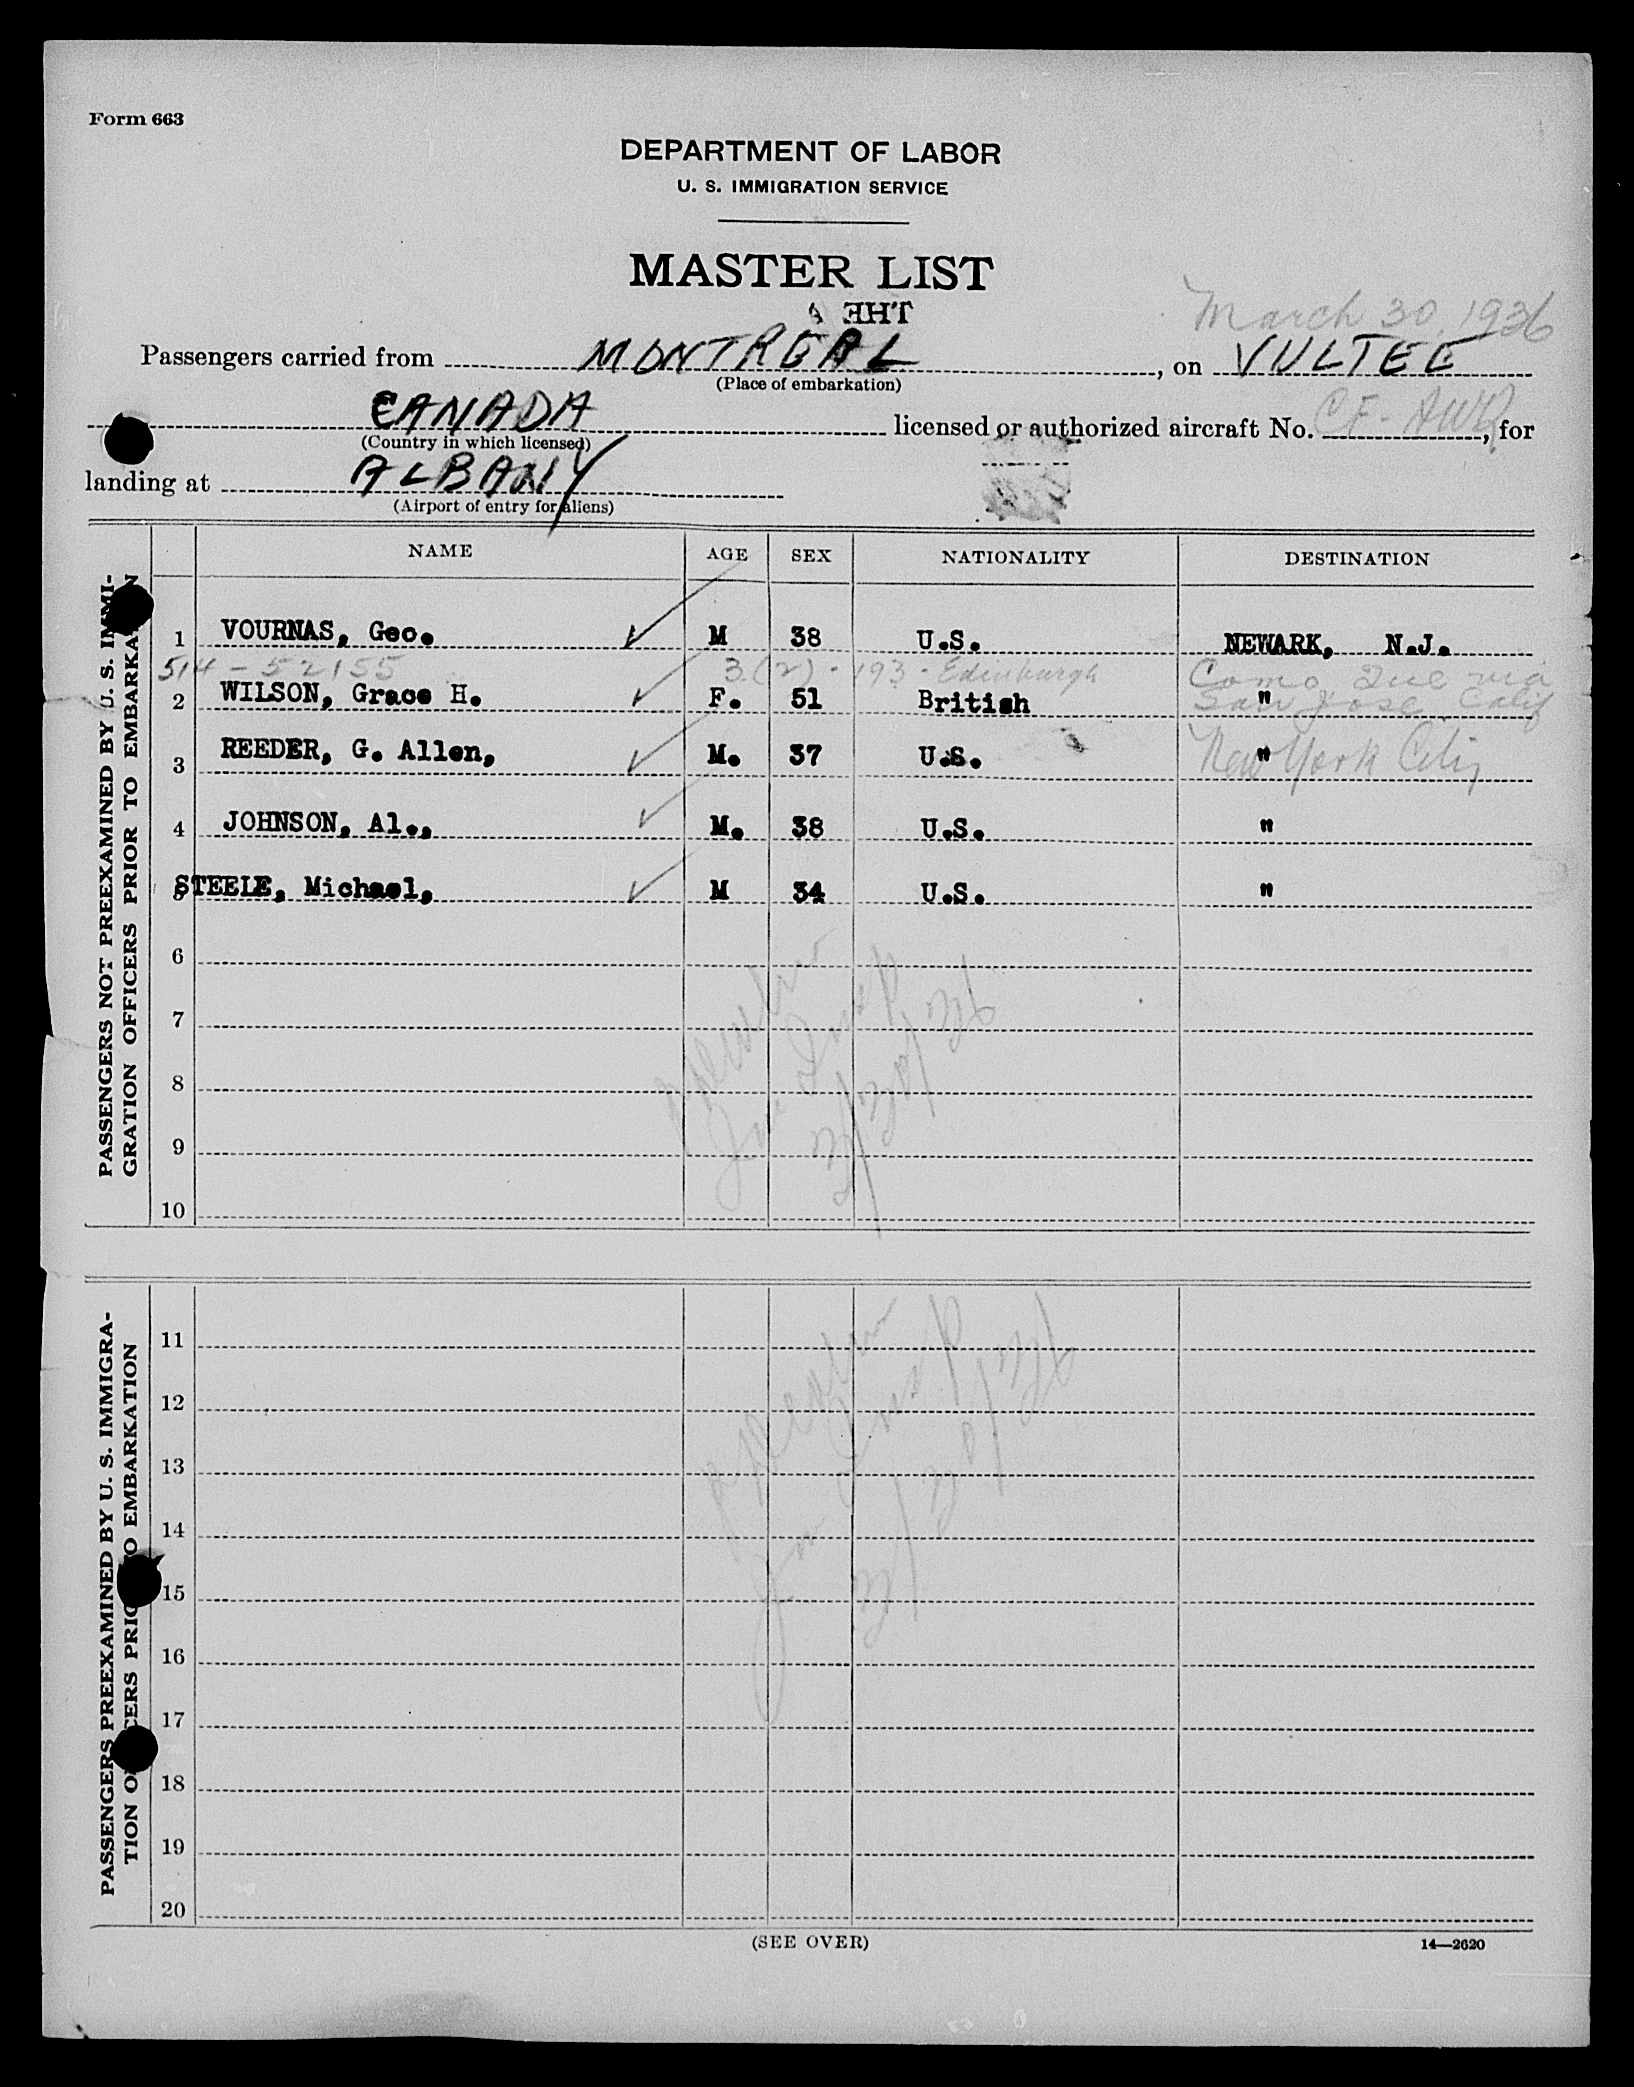 Form 663
DEPARTMENT OF LABOR
U. S. IMMIGRATION SERVICE
MASTER LIST
THE
March 30, 1936
Passengers carried from MONTREAL, on VULTEE
(Place of embarkation)
CANADA licensed or authorized aircraft No. CF-AWQ, for
(Country in which licensed)
landing at ALBANY
(Airport of entry for aliens)
NAME AGE SEX NATIONALITY DESTINATION
PASSENGERS NOT PREEXAMINED BY U. S. IMMI-
GRATION OFFICERS PRIOR TO EMBARKATION
1 VOURNAS, Geo. M 38 U.S. NEWARK, N.J.
514-52155 3.(2)-193-Edinburgh Como, Que via
2 WILSON, Grace H. F. 51 British " San Jose, Calif
3 REEDER, G. Allen, M. 37 U.S. " New York City
4 JOHNSON, Al., M. 38 U.S. "
5 STEELE, Michael, M 34 U.S. "
6
7
8
9
10
PASSENGERS PREEXAMINED BY U. S. IMMIGRA-
TION OFFICERS PRIOR TO EMBARKATION
11
12
13
14
15
16
17
18
19
20
(SEE OVER)
14—2620